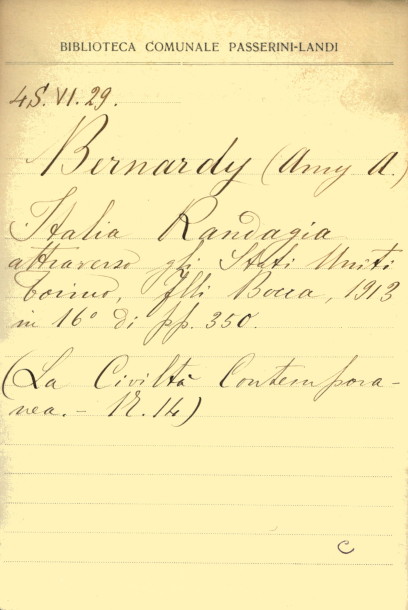 BIBLIOTECA COMUNALE PASSERINI-LANDI
4S. VI. 29.
Bernardy (Amy A.)
Italia Randagia
attraverso gli Stati Uniti
Torino, flli Bocca, 1913
in 16° di pp. 350.
(La Civiltà Contempora-
nea. - N. 14)
C